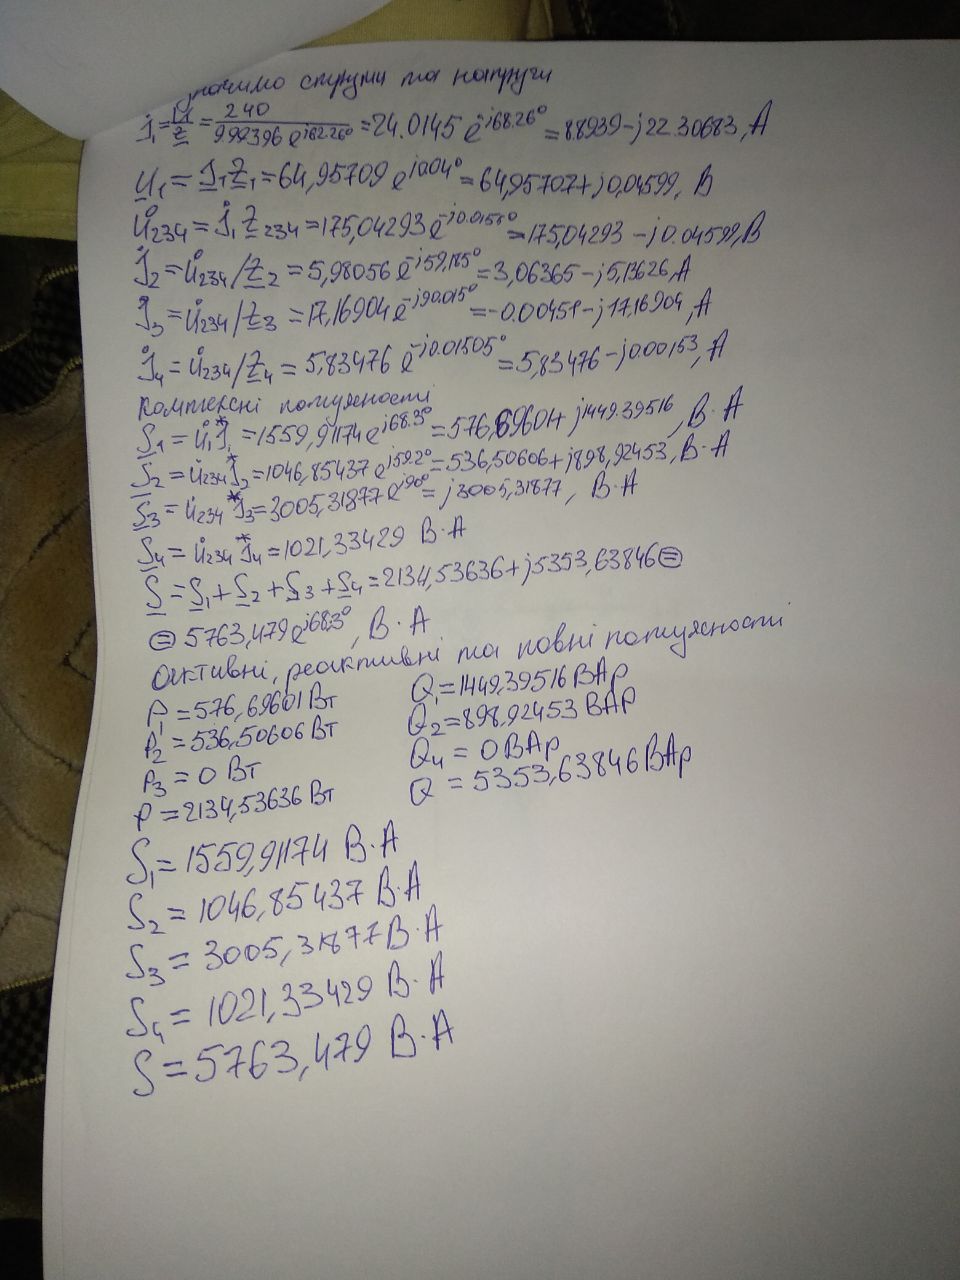 струми та напруги
İ₁ = U/Z = 240/9.99396 e^j62.26° = 24.0145 e^-j68.26° = 8.8939 - j22.30683, A
U₁ = I₁Z₁ = 64,95709 e^j0.04° = 64,95707 + j0,04599, В
U̇234 = İ₁Z234 = 175,04293 e^-j0.0150° = 175,04293 - j0.04599, В
İ₂ = U̇234/Z₂ = 5,98056 e^-j59,185° = 3,06365 - j5,13626, A
İ₃ = U̇234/Z₃ = 17,16904 e^-j90.015° = -0.00451 - j17,16904, A
İ₄ = U̇234/Z₄ = 5,83476 e^-j0.01505° = 5,83476 - j0.00153, A
Комплексні потужності
S₁ = U̇₁I*₁ = 1559,91174 e^j68.3° = 576,69601 + j1449.39516, В·А
S₂ = U̇234 I*₂ = 1046,85437 e^j59.2° = 536,50606 + j898,92453, В·А
S₃ = U̇234 I*₃ = 3005,31877 e^j90° = j3005,31877, В·А
S₄ = U̇234 I*₄ = 1021,33429 В·А
S = S₁ + S₂ + S₃ + S₄ = 2134,53636 + j5353,63846 ⊜
⊜ 5763,479 e^j68,3°, В·А
Активні, реактивні та повні потужності
P₁ = 576,69601 Вт Q₁ = 1449,39516 ВАр
P₂ = 536,50606 Вт Q₂ = 898,92453 ВАР
P₃ = 0 Вт Q₄ = 0 ВАр
P = 2134,53636 Вт Q = 5353,63846 ВАр
S₁ = 1559,91174 В·А
S₂ = 1046,85437 В·А
S₃ = 3005,31877 В·А
S₄ = 1021,33429 В·А
S = 5763,479 В·А